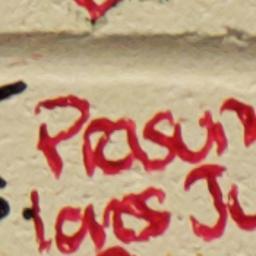 Prasun
loves Ju